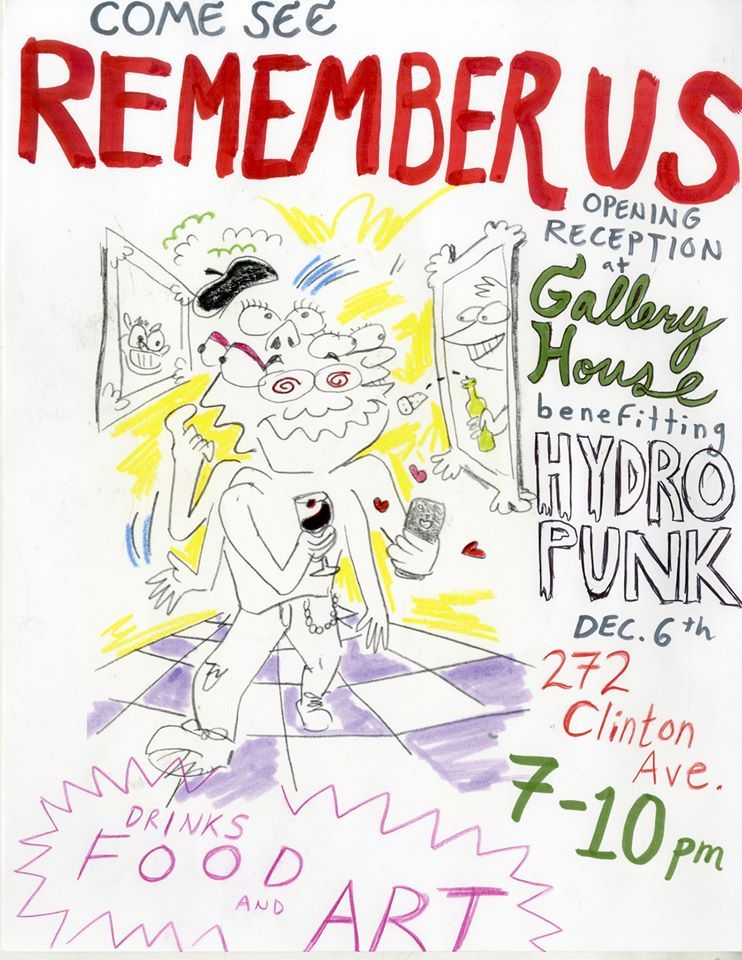 COME SEE
REMEMBER US
OPENING
RECEPTION
at
Gallery
House
benefitting
HYDRO
PUNK
DEC. 6th
272
Clinton
Ave.
7-10 pm
DRINKS
FOOD
AND
ART